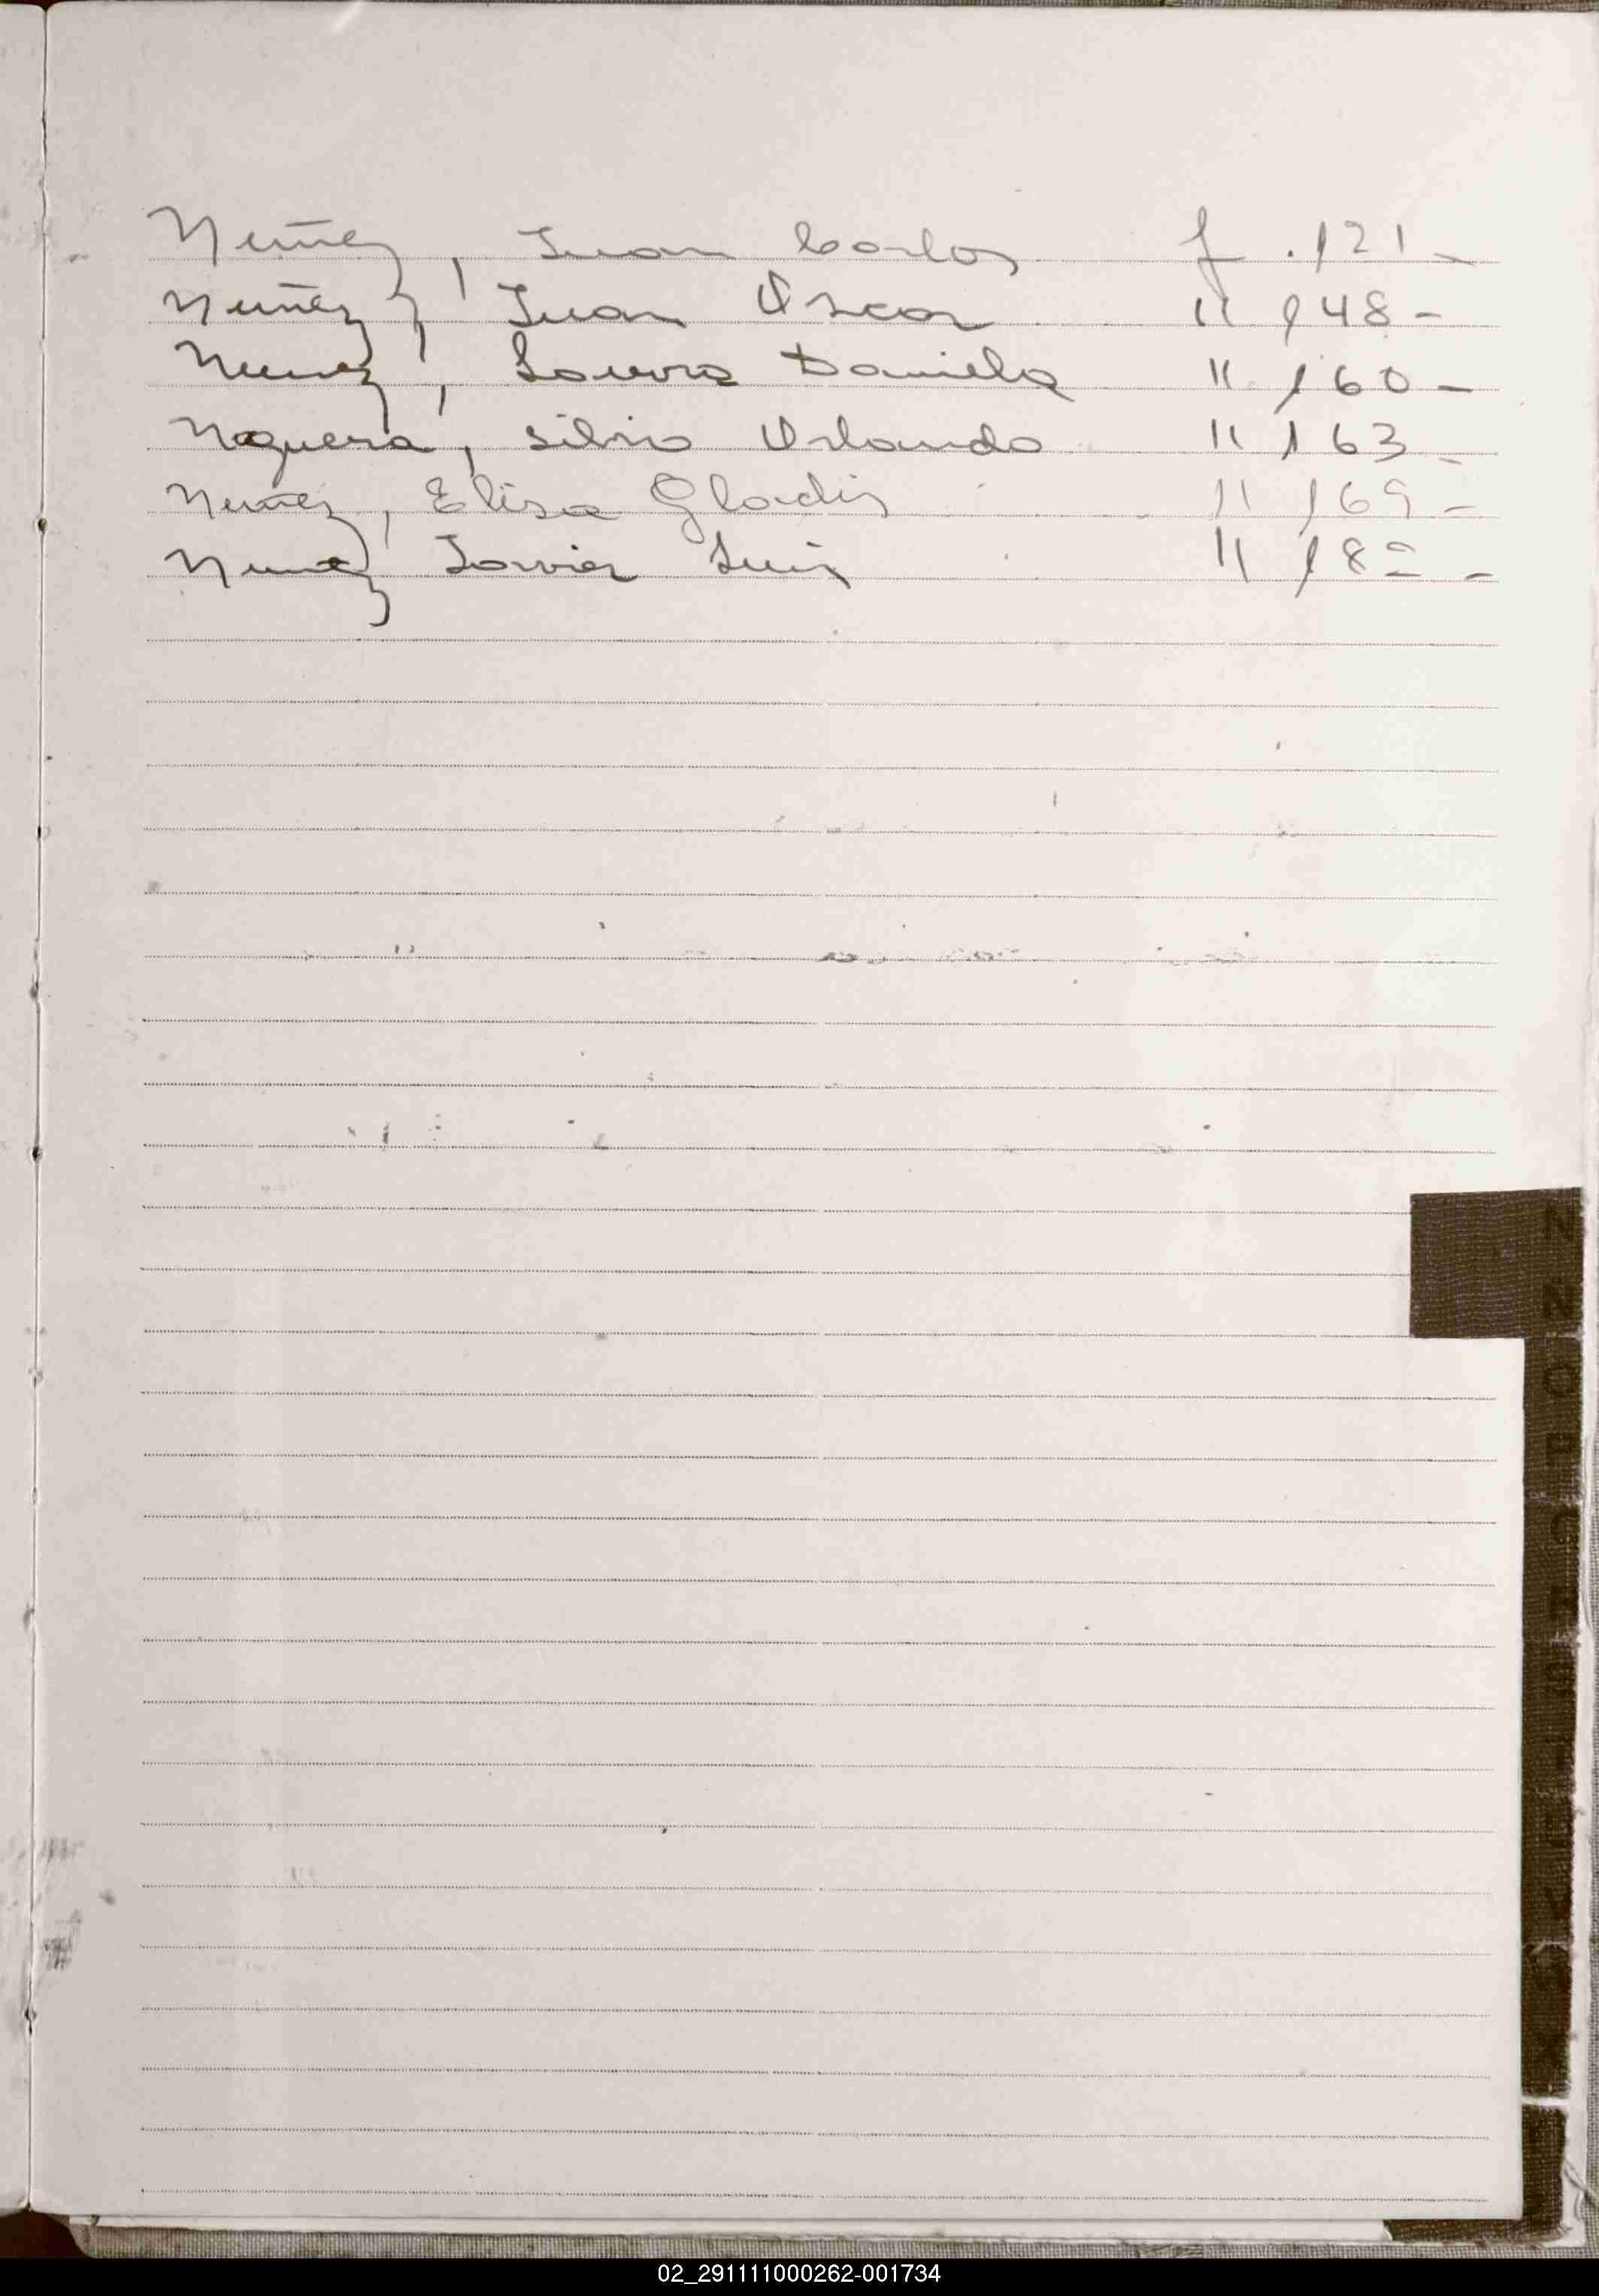 Nuñez, Juan Carlos f. 121-
Nuñez, Juan Oscar " 148-
Nunez, Laura Daniela " 160-
Noguera, Silvio Orlando " 163-
Nuñez, Elisa Gladis " 169-
Nunez Javier Luis " 18 -
N
Ñ
O
P
Q
02_291111000262-001734